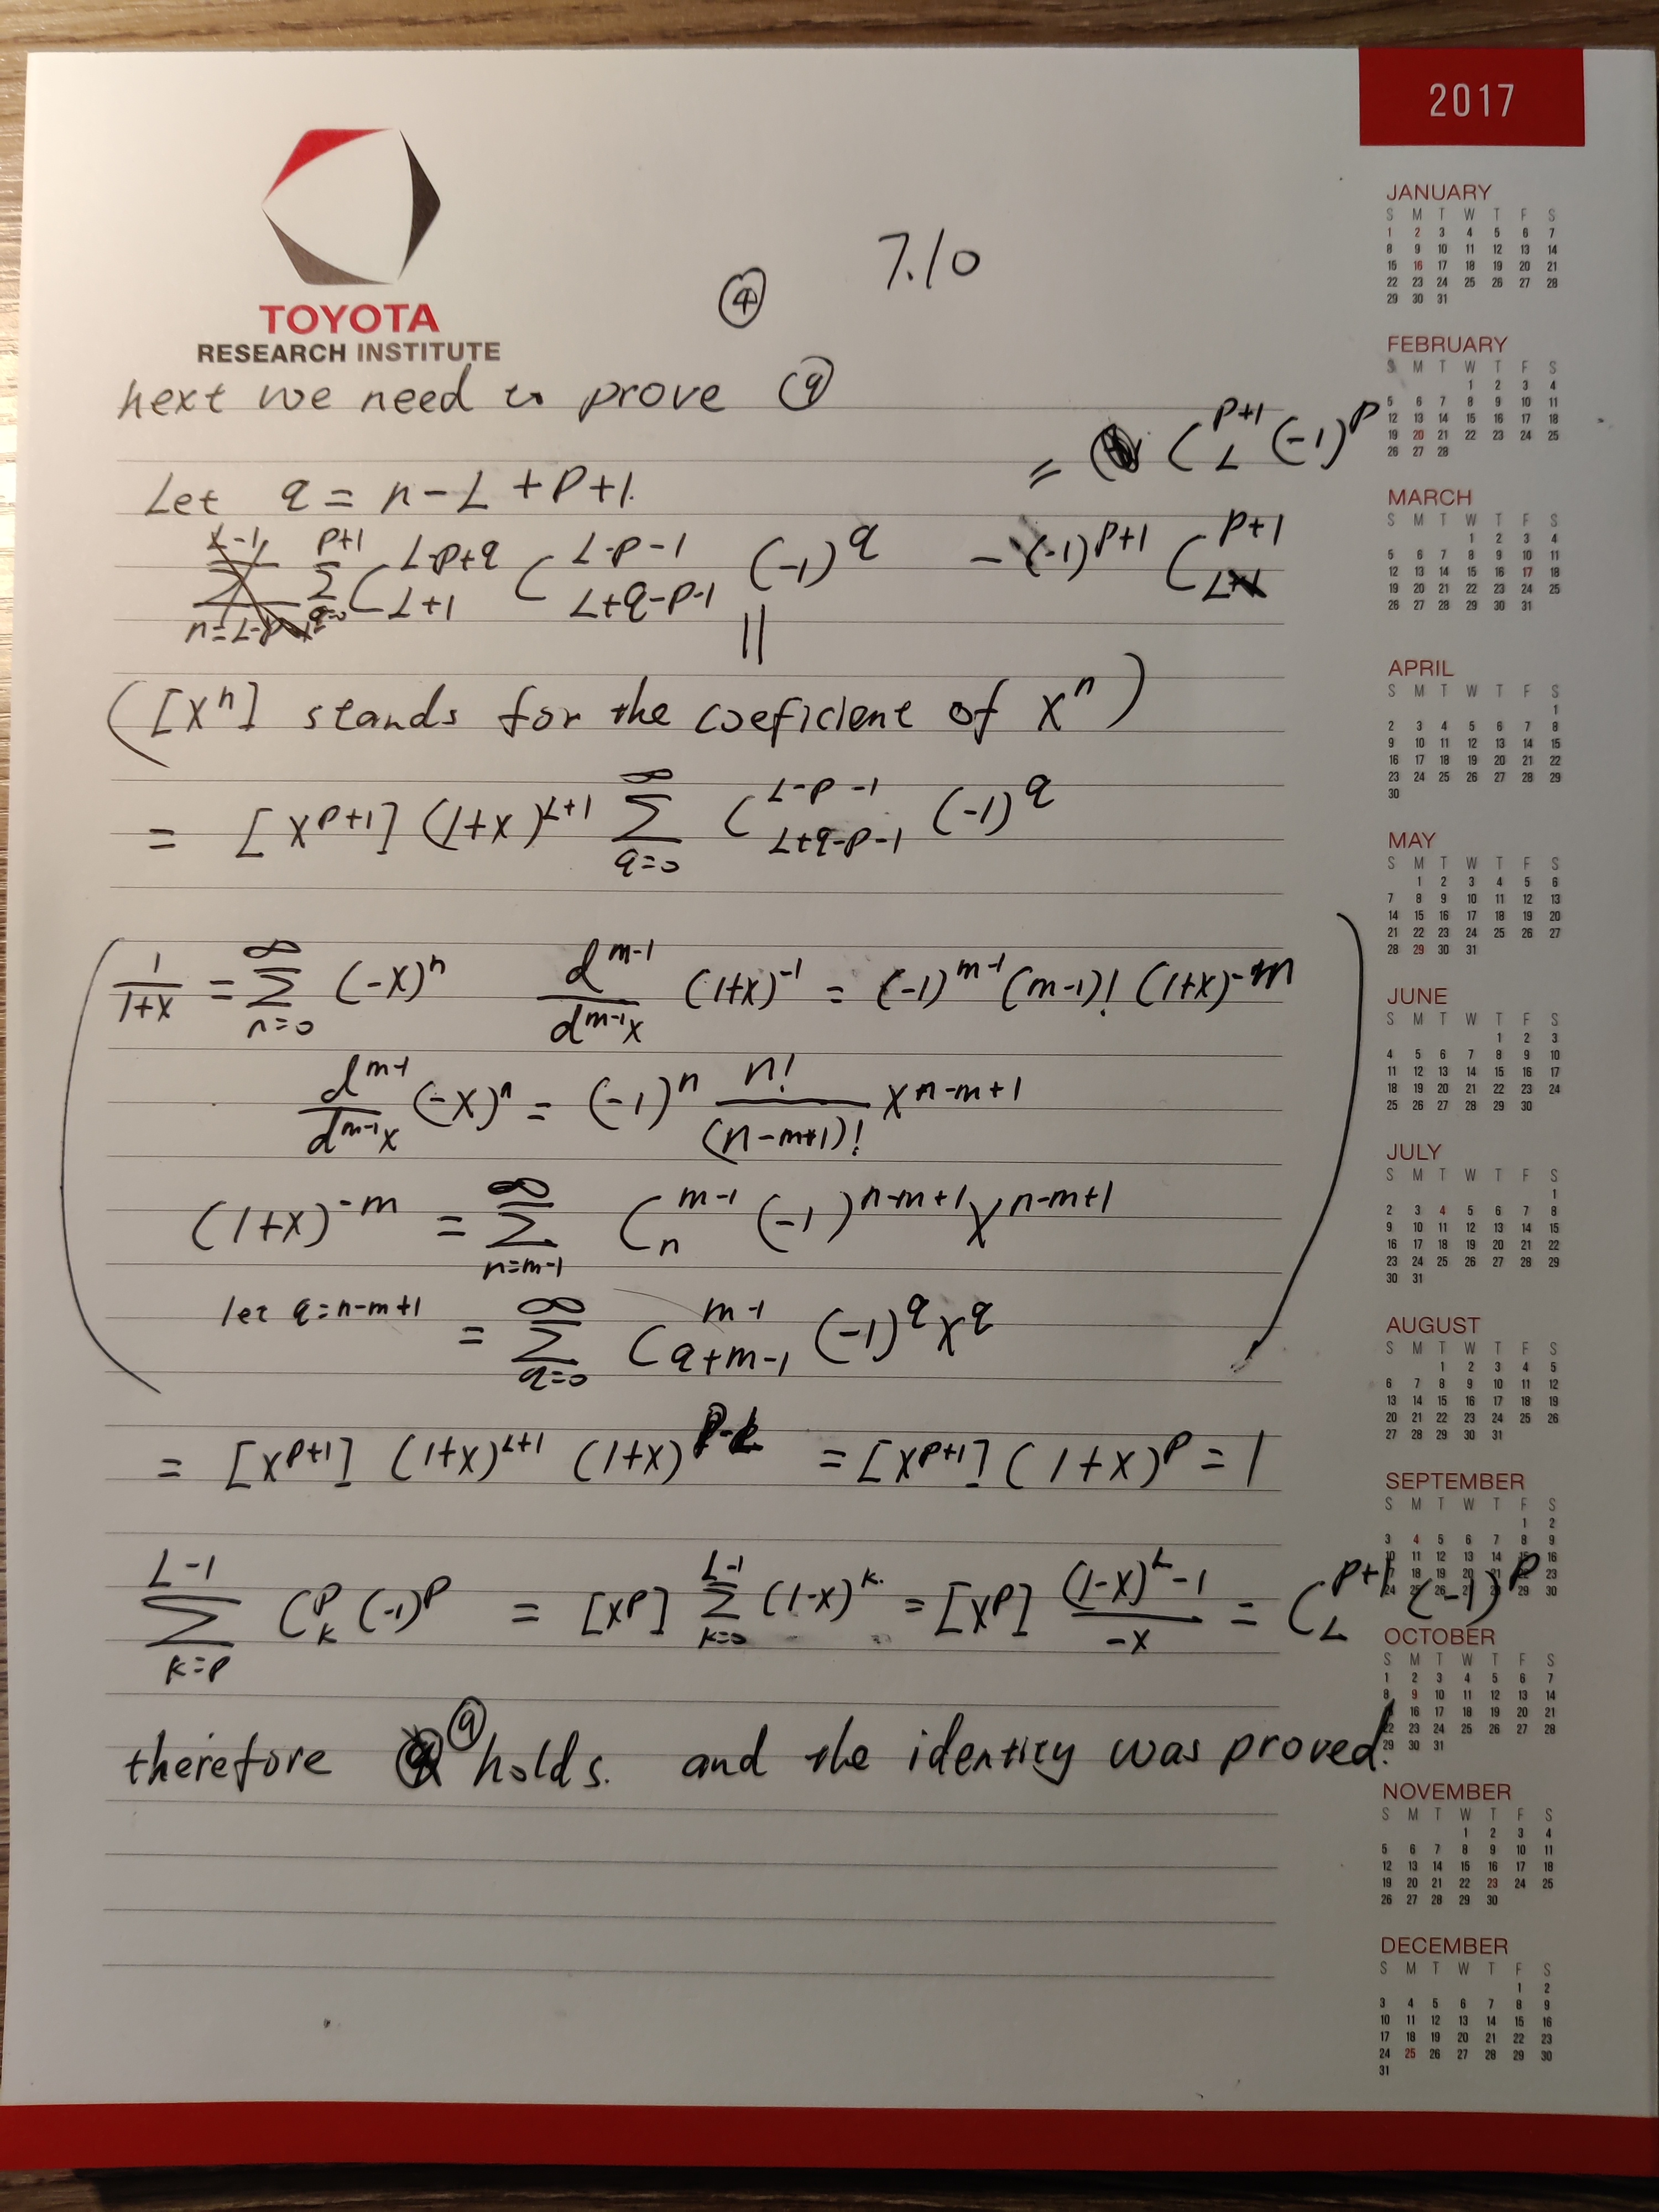 2017
TOYOTA
RESEARCH INSTITUTE
④ 7.10
next we need to prove ⑨
Let q = n-L+P+1.
= C_L^{P+1} (-1)^P
\sum_{q=0}^{P+1} C_{L+1}^{L-P+q} C_{L+q-P-1}^{L-P-1} (-1)^q - (-1)^{P+1} C_L^{P+1}
||
([x^n] stands for the coeficient of x^n)
= [x^{P+1}] (1+x)^{L+1} \sum_{q=0}^{∞} C_{L+q-P-1}^{L-P-1} (-1)^q
\frac{1}{1+x} = \sum_{n=0}^{∞} (-x)^n \frac{d^{m-1}}{d^{m-1}x} (1+x)^{-1} = (-1)^{m-1} (m-1)! (1+x)^{-m}
\frac{d^{m-1}}{d^{m-1}x} (-x)^n = (-1)^n \frac{n!}{(n-m+1)!} x^{n-m+1}
(1+x)^{-m} = \sum_{n=m-1}^{∞} C_n^{m-1} (-1)^{n-m+1} x^{n-m+1}
let q=n-m+1 = \sum_{q=0}^{∞} C_{q+m-1}^{m-1} (-1)^q x^q
= [x^{P+1}] (1+x)^{L+1} (1+x)^{P-L} = [x^{P+1}] (1+x)^P = 1
\sum_{k=P}^{L-1} C_k^P (-1)^P = [x^P] \sum_{k=0}^{L-1} (1-x)^k = [x^P] \frac{(1-x)^L-1}{-x} = C_L^{P+1} (-1)^P
therefore ⑨ holds. and the identity was proved.
JANUARY
S M T W T F S
1 2 3 4 5 6 7
8 9 10 11 12 13 14
15 16 17 18 19 20 21
22 23 24 25 26 27 28
29 30 31
FEBRUARY
S M T W T F S
1 2 3 4
5 6 7 8 9 10 11
12 13 14 15 16 17 18
19 20 21 22 23 24 25
26 27 28
MARCH
S M T W T F S
1 2 3 4
5 6 7 8 9 10 11
12 13 14 15 16 17 18
19 20 21 22 23 24 25
26 27 28 29 30 31
APRIL
S M T W T F S
1
2 3 4 5 6 7 8
9 10 11 12 13 14 15
16 17 18 19 20 21 22
23 24 25 26 27 28 29
30
MAY
S M T W T F S
1 2 3 4 5 6
7 8 9 10 11 12 13
14 15 16 17 18 19 20
21 22 23 24 25 26 27
28 29 30 31
JUNE
S M T W T F S
1 2 3
4 5 6 7 8 9 10
11 12 13 14 15 16 17
18 19 20 21 22 23 24
25 26 27 28 29 30
JULY
S M T W T F S
1
2 3 4 5 6 7 8
9 10 11 12 13 14 15
16 17 18 19 20 21 22
23 24 25 26 27 28 29
30 31
AUGUST
S M T W T F S
1 2 3 4 5
6 7 8 9 10 11 12
13 14 15 16 17 18 19
20 21 22 23 24 25 26
27 28 29 30 31
SEPTEMBER
S M T W T F S
1 2
3 4 5 6 7 8 9
10 11 12 13 14 15 16
17 18 19 20 21 22 23
24 25 26 27 28 29 30
OCTOBER
S M T W T F S
1 2 3 4 5 6 7
8 9 10 11 12 13 14
16 17 18 19 20 21
22 23 24 25 26 27 28
29 30 31
NOVEMBER
S M T W T F S
1 2 3 4
5 6 7 8 9 10 11
12 13 14 15 16 17 18
19 20 21 22 23 24 25
26 27 28 29 30
DECEMBER
S M T W T F S
1 2
3 4 5 6 7 8 9
10 11 12 13 14 15 16
17 18 19 20 21 22 23
24 25 26 27 28 29 30
31